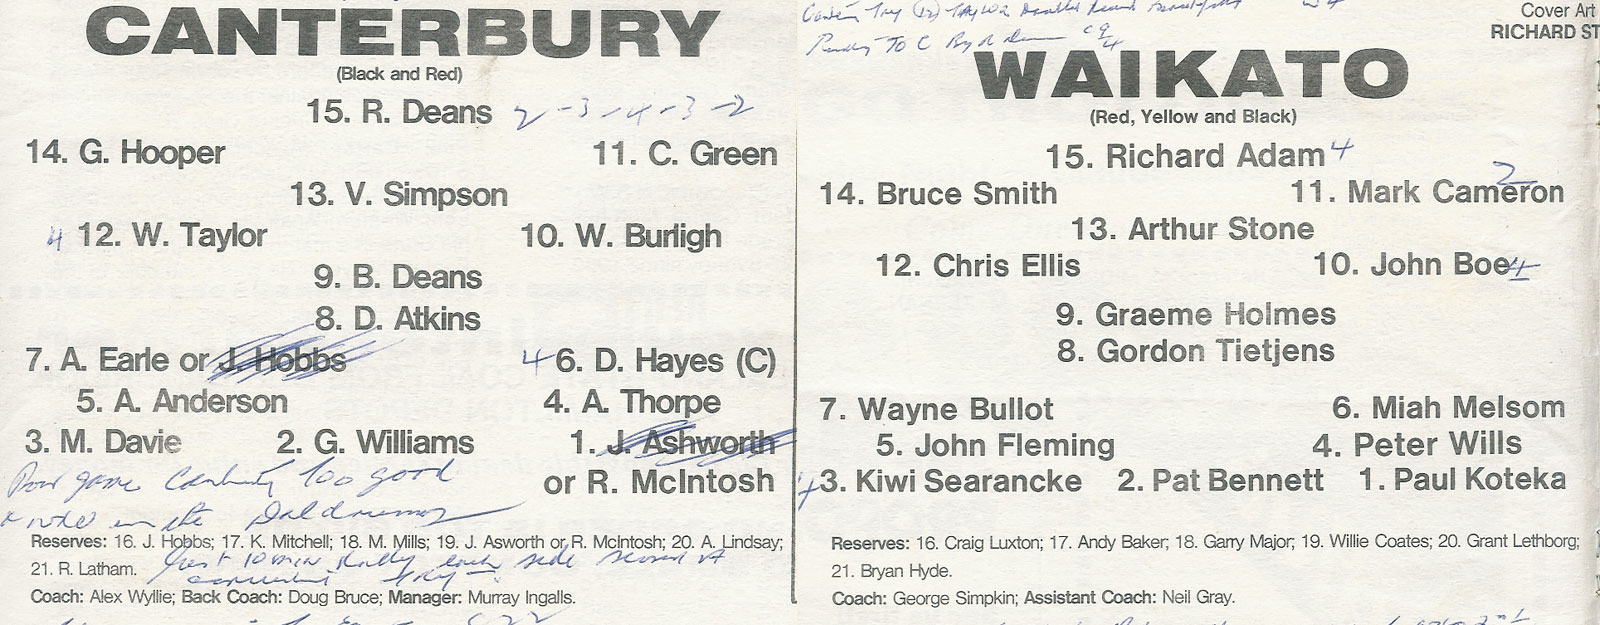 CANTERBURY
(Black and Red)
15. R. Deans 2 - 3 - 4 - 3 - 2
14. G. Hooper 11. C. Green
13. V. Simpson
4 12. W. Taylor 10. W. Burligh
9. B. Deans
8. D. Atkins
7. A. Earle or J. Hobbs 4 6. D. Hayes (C)
5. A. Anderson 4. A. Thorpe
3. M. Davie 2. G. Williams 1. J. Ashworth
or R. McIntosh
Poor game Canterbury too good
in the Doldrums
Reserves: 16. J. Hobbs; 17. K. Mitchell; 18. M. Mills; 19. J. Asworth or R. McIntosh; 20. A. Lindsay;
21. R. Latham.
10 min each side
Coach: Alex Wyllie; Back Coach: Doug Bruce; Manager: Murray Ingalls.
Try Taylor
Penalty To C By R Deans
Cover Art
RICHARD ST
WAIKATO
(Red, Yellow and Black)
15. Richard Adam 4
2
14. Bruce Smith 11. Mark Cameron
13. Arthur Stone
12. Chris Ellis 10. John Boe 4
9. Graeme Holmes
8. Gordon Tietjens
7. Wayne Bullot 6. Miah Melsom
5. John Fleming 4. Peter Wills
3. Kiwi Searancke 2. Pat Bennett 1. Paul Koteka
Reserves: 16. Craig Luxton; 17. Andy Baker; 18. Garry Major; 19. Willie Coates; 20. Grant Lethborg;
21. Bryan Hyde.
Coach: George Simpkin; Assistant Coach: Neil Gray.